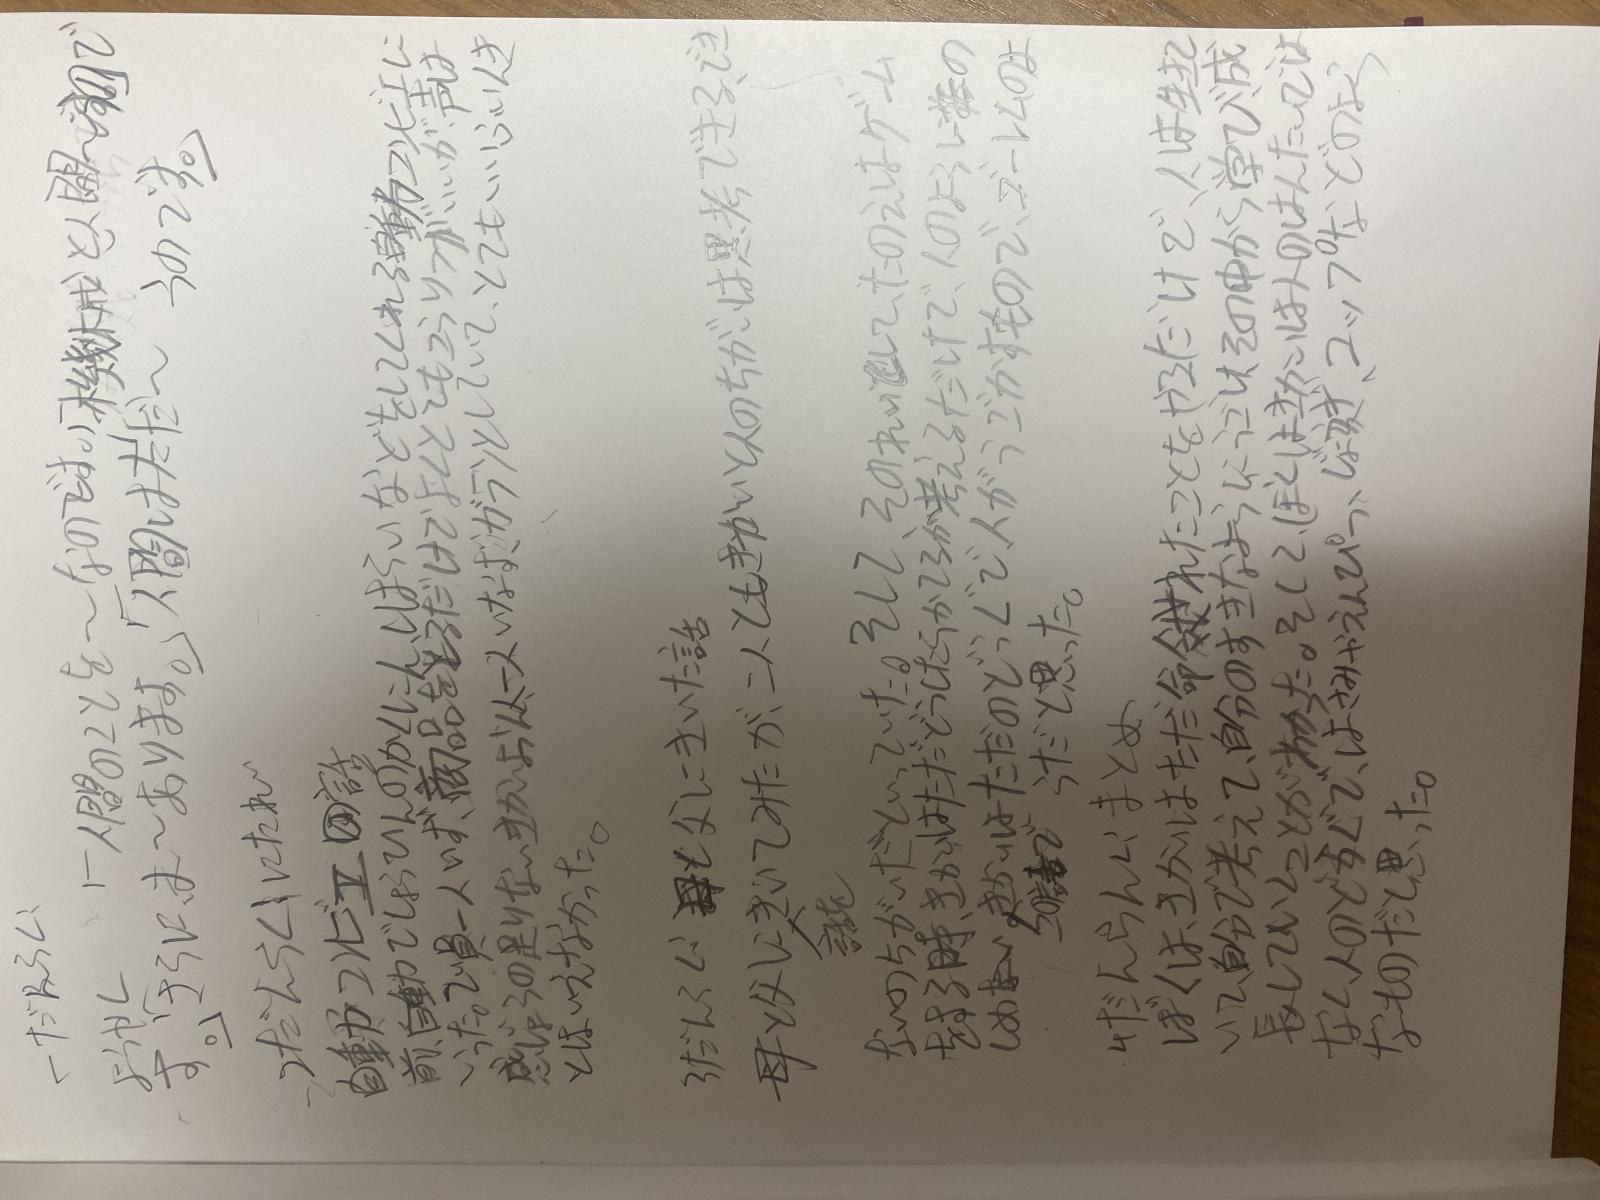 一だんらく
ようやし 「人間のことを〜なのです。」「機械と人間で
す「さらに、は〜あります。」「人間はただ〜 うのです。」
す。」
2だんらくにたれい
自動コンビニ の話
前、自動でしょうひんのかくにん、はらいなどをしてくれる自動コンビニに
いった。で員一人いず、商品をとるだけでよくとてもこうりつがいいが、声は
感じょうの足りないきかい以人一人いなずガランとしていて、とてもいいふんいき
とはいえなかった。
3だんらく 母と父にきいた話
母と父に話をきいてみたが、二人ともきかいと人のちがいは思考できる、でき
ないのちがいだといっていた。そして、そのれいとしてたのえはゲーム
をする時、きかいはただどうしたらかてるか考えるだけで、人のように
しめない。きかいはただのどうぐで、人がうごかすもので、ゴーレムのよ
うだと思った。
4だんらく まとめ
ぼくは、きかいはただ命令されたことをやるだけで、人は生きて
いて、自分で考えて、自分のすきなようにうごけその中から学び、成
長していくことがわかった。そして、ぼくはきかいは人のはんたいでは
なく、人のどうぐで、はさみやえんぴつ、じょうぎ、コップなどのよう
なものだと思った。